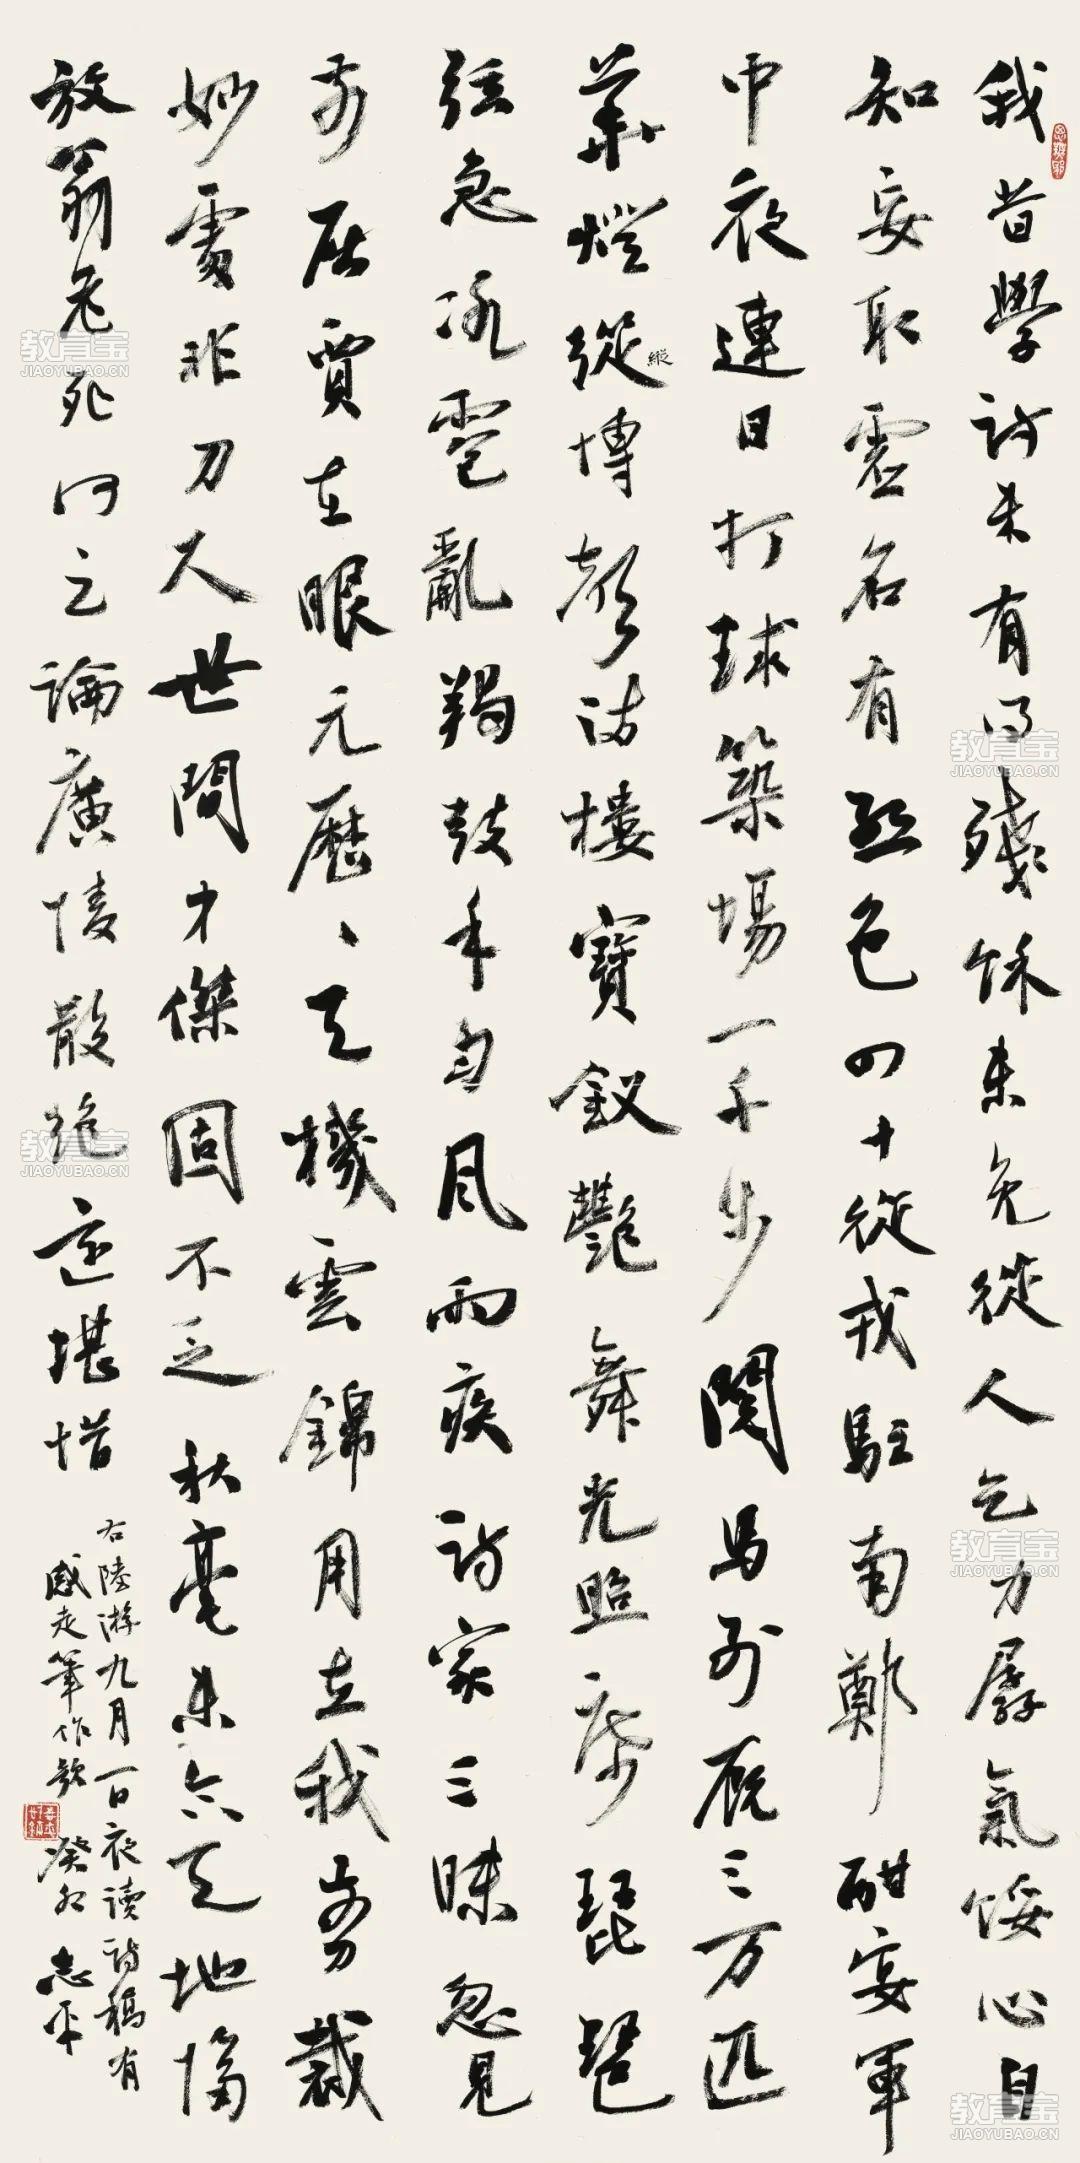 我昔學詩未有得殘餘未免從人乞力孱氣餒心自
知妄取虛名有慙色四十從戎駐南鄭酣宴軍
中夜連日打球築場一千步閱馬列厩三万匹
華燈從博聲滿樓寶釵艷舞光照席琵琶
縱
弦急冰雹亂羯鼓手匀風雨疾詩家三昧忽見
前屈賈在眼元歷〻天機雲錦用在我剪裁
妙處非刀尺世間才傑固不乏秋毫未合天地隔
放翁老死何足論廣陵散絕還堪惜
右陸游九月一日夜讀詩稿有
感走筆作歌 癸卯 志平
思無邪
教育宝
JIAOYUBAO.CN
教育宝
JIAOYUBAO.CN
教育宝
JIAOYUBAO.CN
教育宝
JIAOYUBAO.CN
教育宝
JIAOYUBAO.CN